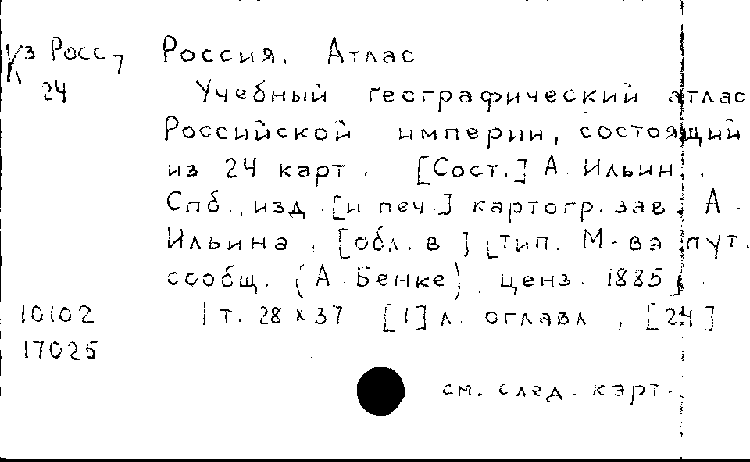 К3 Росс7 Россия. Атлас
24 Учебный географический атлас
Российской империи, состоящий
из 24 карт. [Сост.] А. Ильин.
Спб., изд. [и печ.] картогр. зав. А.
Ильина, [обл. в] [тип. М-ва пут.
сообщ. (А. Бенке), ценз. 1885].
10102 1 т. 28 x 37 [1] л. оглавл., [24]
17025
см. след. карт.